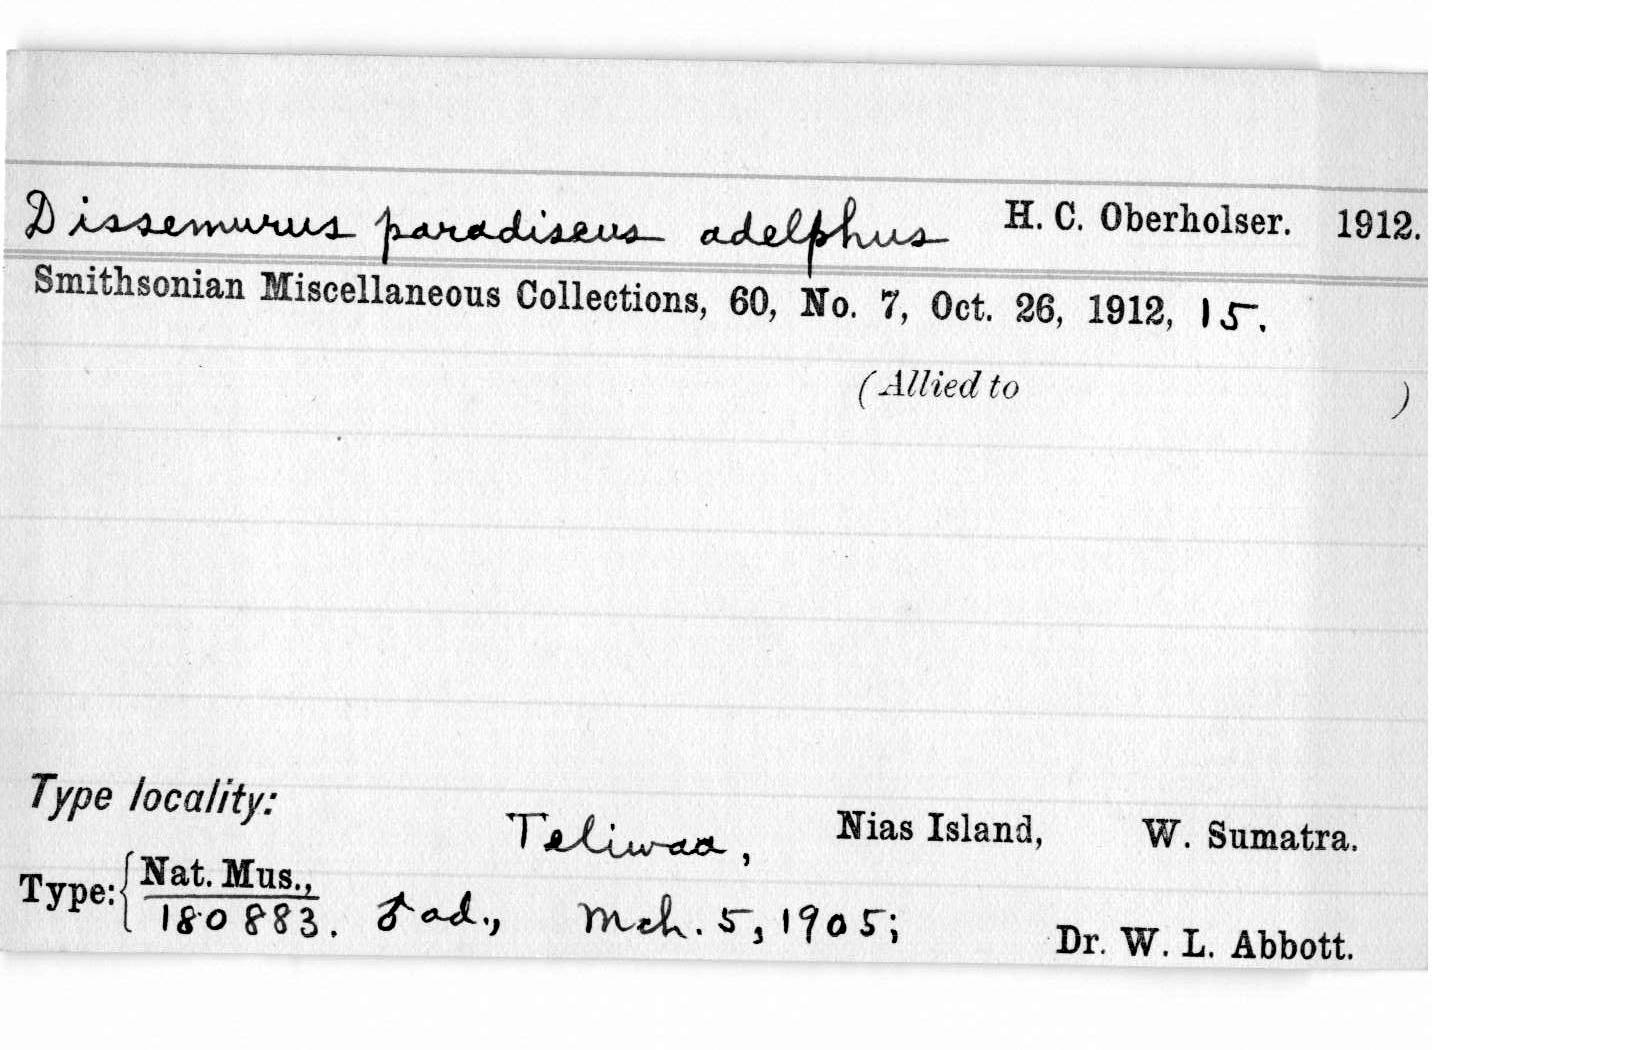 Dissemurus paradiseus adelphus H. C. Oberholser. 1912.
Smithsonian Miscellaneous Collections, 60, No. 7, Oct. 26, 1912, 15.
(Allied to )
Type locality:
Teliwaa, Nias Island, W. Sumatra.
Type: { Nat. Mus.,
180883. ♂ ad., Mch. 5, 1905; Dr. W. L. Abbott.